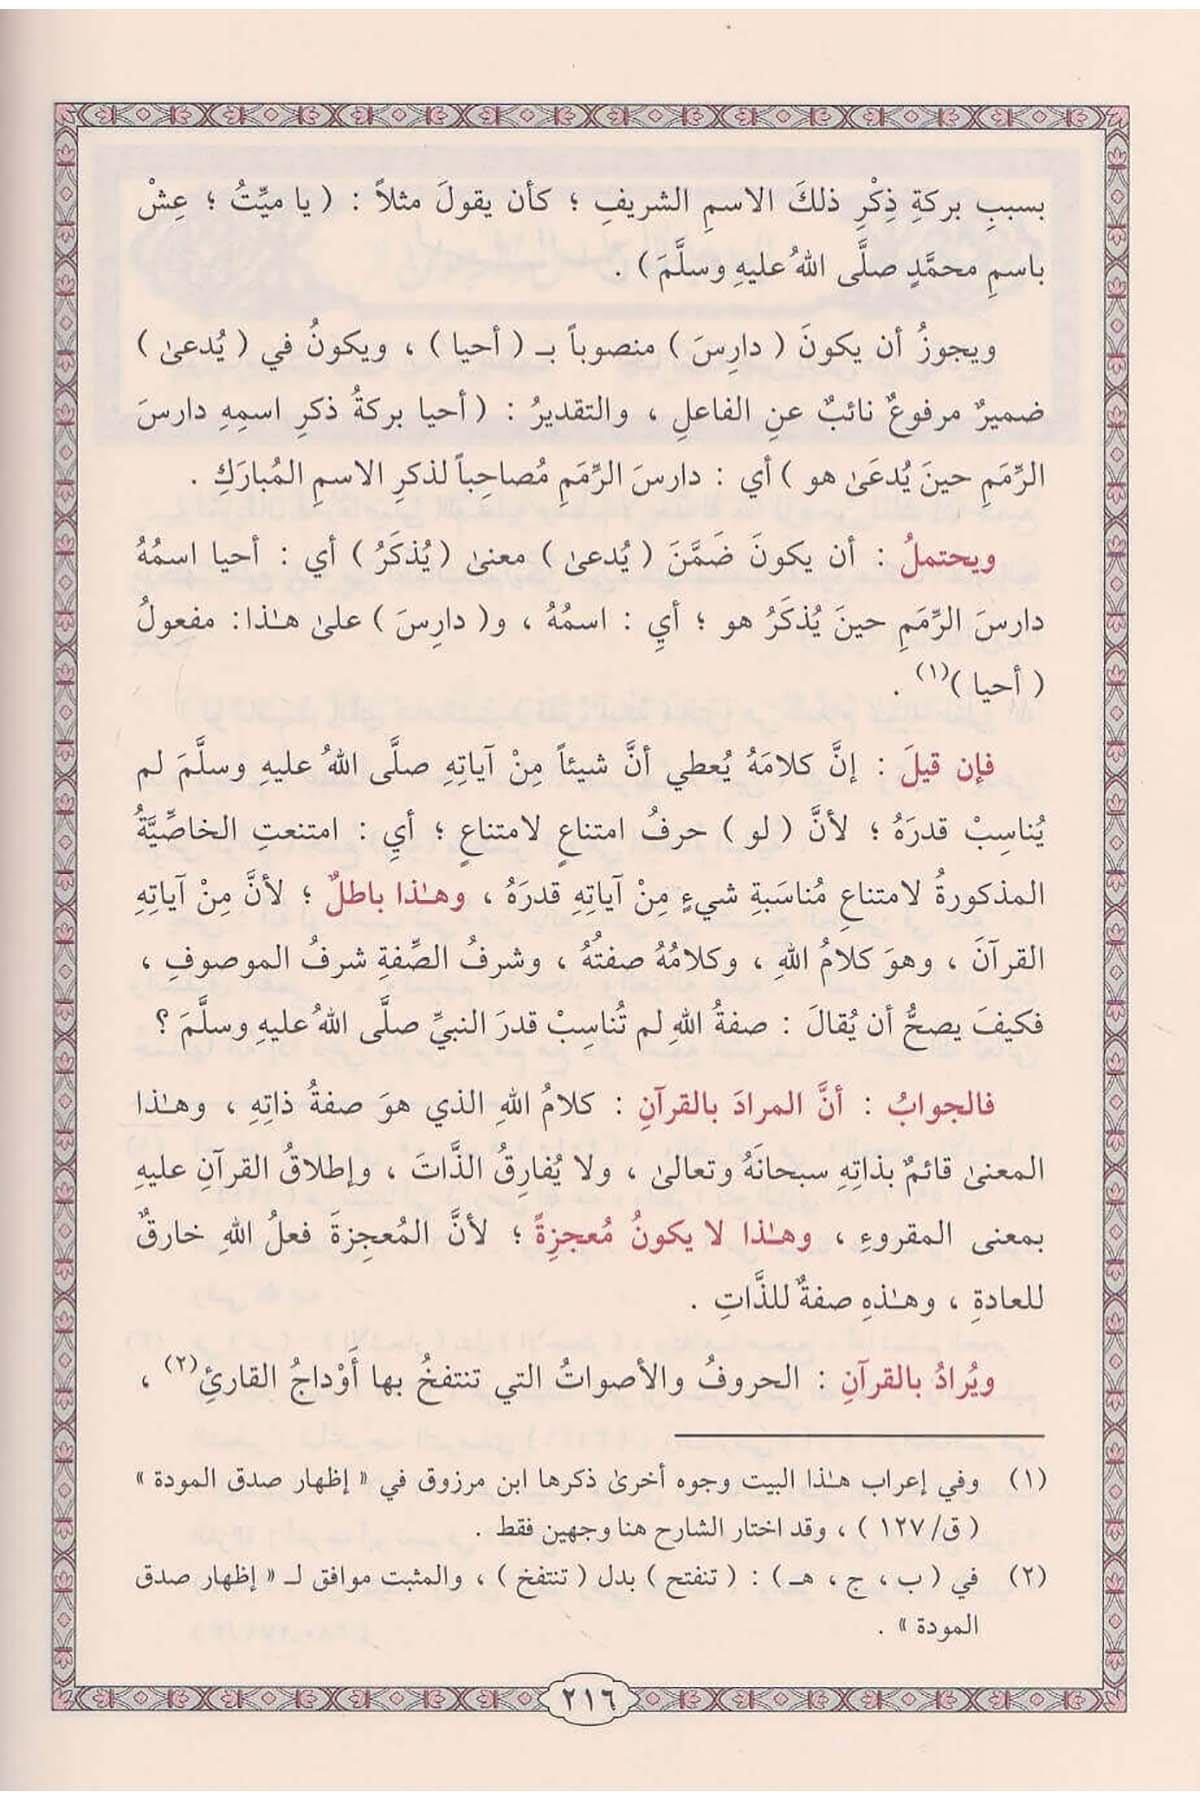 بسببِ بركةِ ذِكْرِ ذلكَ الاسمِ الشريفِ ؛ كأن يقولَ مثلاً : ( يا ميِّتُ ؛ عِشْ
باسمِ محمَّدٍ صلَّى اللهُ عليهِ وسلَّمَ ) .
ويجوزُ أن يكونَ ( دارِسَ ) منصوباً بـ ( أحيا ) ، ويكونُ في ( يُدعىٰ )
ضميرٌ مرفوعٌ نائبٌ عنِ الفاعلِ ، والتقديرُ : ( أحيا بركةُ ذكرِ اسمِهِ دارسَ
الرِّمَمِ حينَ يُدعَىٰ هو ) أي : دارسَ الرِّمَمِ مُصاحِباً لذكرِ الاسمِ المُبارَكِ .
ويحتملُ : أن يكونَ ضَمَّنَ ( يُدعىٰ ) معنىٰ ( يُذكَرُ ) أي : أحيا اسمُهُ
دارسَ الرِّمَمِ حينَ يُذكَرُ هو ؛ أيِ : اسمُهُ ، و( دارِسَ ) علىٰ هـٰذا : مفعولُ
( أحيا )(١) .
فإن قيلَ : إنَّ كلامَهُ يُعطي أنَّ شيئاً مِنْ آياتِهِ صلَّى اللهُ عليهِ وسلَّمَ لم
يُناسِبْ قدرَهُ ؛ لأنَّ ( لو ) حرفُ امتناعٍ لامتناعٍ ؛ أيِ : امتنعتِ الخاصِّيَّةُ
المذكورةُ لامتناعِ مُناسَبةِ شيءٍ مِنْ آياتِهِ قدرَهُ ، وهـٰذا باطلٌ ؛ لأنَّ مِنْ آياتِهِ
القرآنَ ، وهوَ كلامُ اللهِ ، وكلامُهُ صفتُهُ ، وشرفُ الصِّفةِ شرفُ الموصوفِ ،
فكيفَ يصحُّ أن يُقالَ : صفةُ اللهِ لم تُناسِبْ قدرَ النبيِّ صلَّى اللهُ عليهِ وسلَّمَ ؟
فالجوابُ : أنَّ المرادَ بالقرآنِ : كلامُ اللهِ الذي هوَ صفةُ ذاتِهِ ، وهـٰذا
المعنىٰ قائمٌ بذاتِهِ سبحانَهُ وتعالىٰ ، ولا يُفارِقُ الذَّاتَ ، وإطلاقُ القرآنِ عليهِ
بمعنى المقروءِ ، وهـٰذا لا يكونُ مُعجِزةً ؛ لأنَّ المُعجِزةَ فعلُ اللهِ خارقٌ
للعادةِ ، وهـٰذهِ صفةٌ للذَّاتِ .
ويُرادُ بالقرآنِ : الحروفُ والأصواتُ التي تنتفخُ بها أَوْداجُ القارئِ(٢) ،
(١) وفي إعراب هـٰذا البيت وجوه أخرىٰ ذكرها ابن مرزوق في « إظهار صدق المودة »
( ق/ ١٢٧ ) ، وقد اختار الشارح هنا وجهين فقط .
(٢) في ( ب ، ج ، هـ ) : ( تنفتح ) بدل ( تنتفخ ) ، والمثبت موافق لـ « إظهار صدق
المودة » .
٢١٦